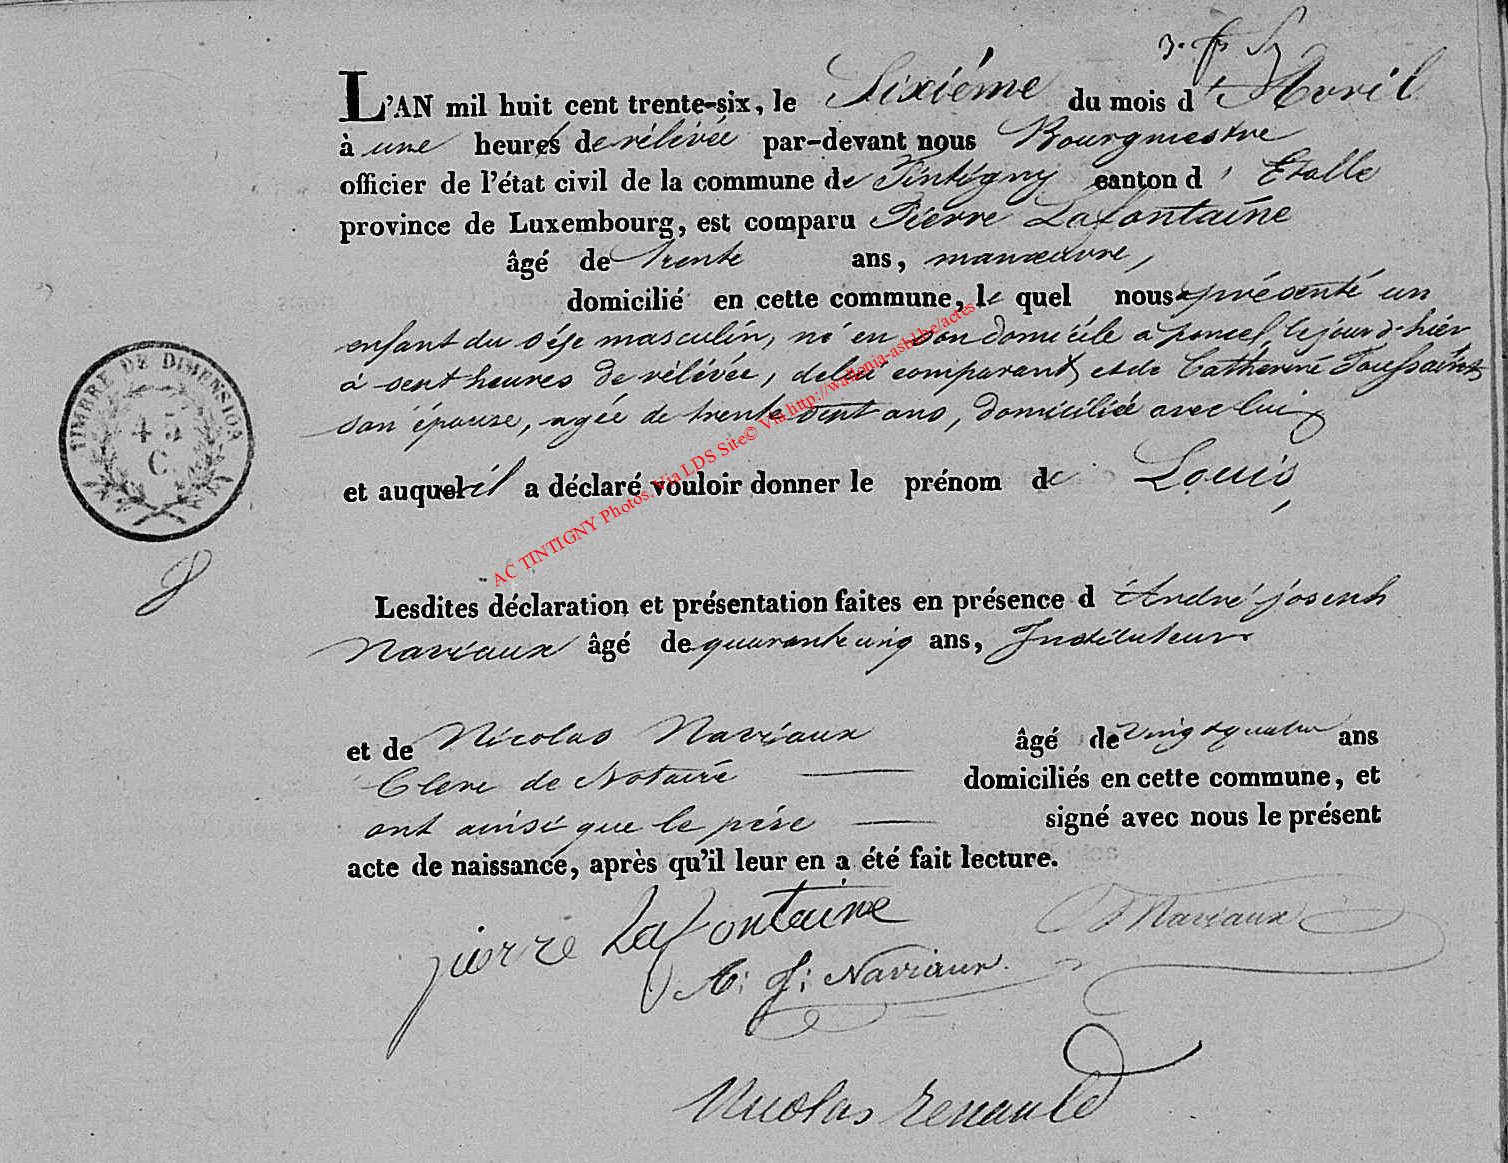 L'AN mil huit cent trente-six, le Sixiéme du mois d'Avril
à une heures de rélévée par-devant nous Bourgmestre
officier de l'état civil de la commune de Tintigny canton d'Etalle
province de Luxembourg, est comparu Pierre Lafontaine
âgé de trente ans, manœuvre,
domicilié en cette commune, le quel nous a présenté un
enfant du séxe masculin, né en son domicile à poncel, le jour d'hiér
à sept heures de rélévée, de lui comparant et de Catherine Toussaint
son épouse, agée de trente sept ans, domiciliée avec lui
et auquel il a déclaré vouloir donner le prénom de Louis,
TIMBRE DE DIMENSION
45
C.
AC TINTIGNY Photos. Via LDS Site© Via http://wallonia-asbl.be/actes
Lesdites déclaration et présentation faites en présence d'André joseph
Naviaux âgé de quarante cinq ans, Instituteur
et de Nicolas Naviaux âgé de vingt quatre ans
Clerc de Notaire domiciliés en cette commune, et
ont ainsi que le pére signé avec nous le présent
acte de naissance, après qu'il leur en a été fait lecture.
pierre Lafontaine
Naviaux
A: J: Naviaux.
Nicolas Renauld